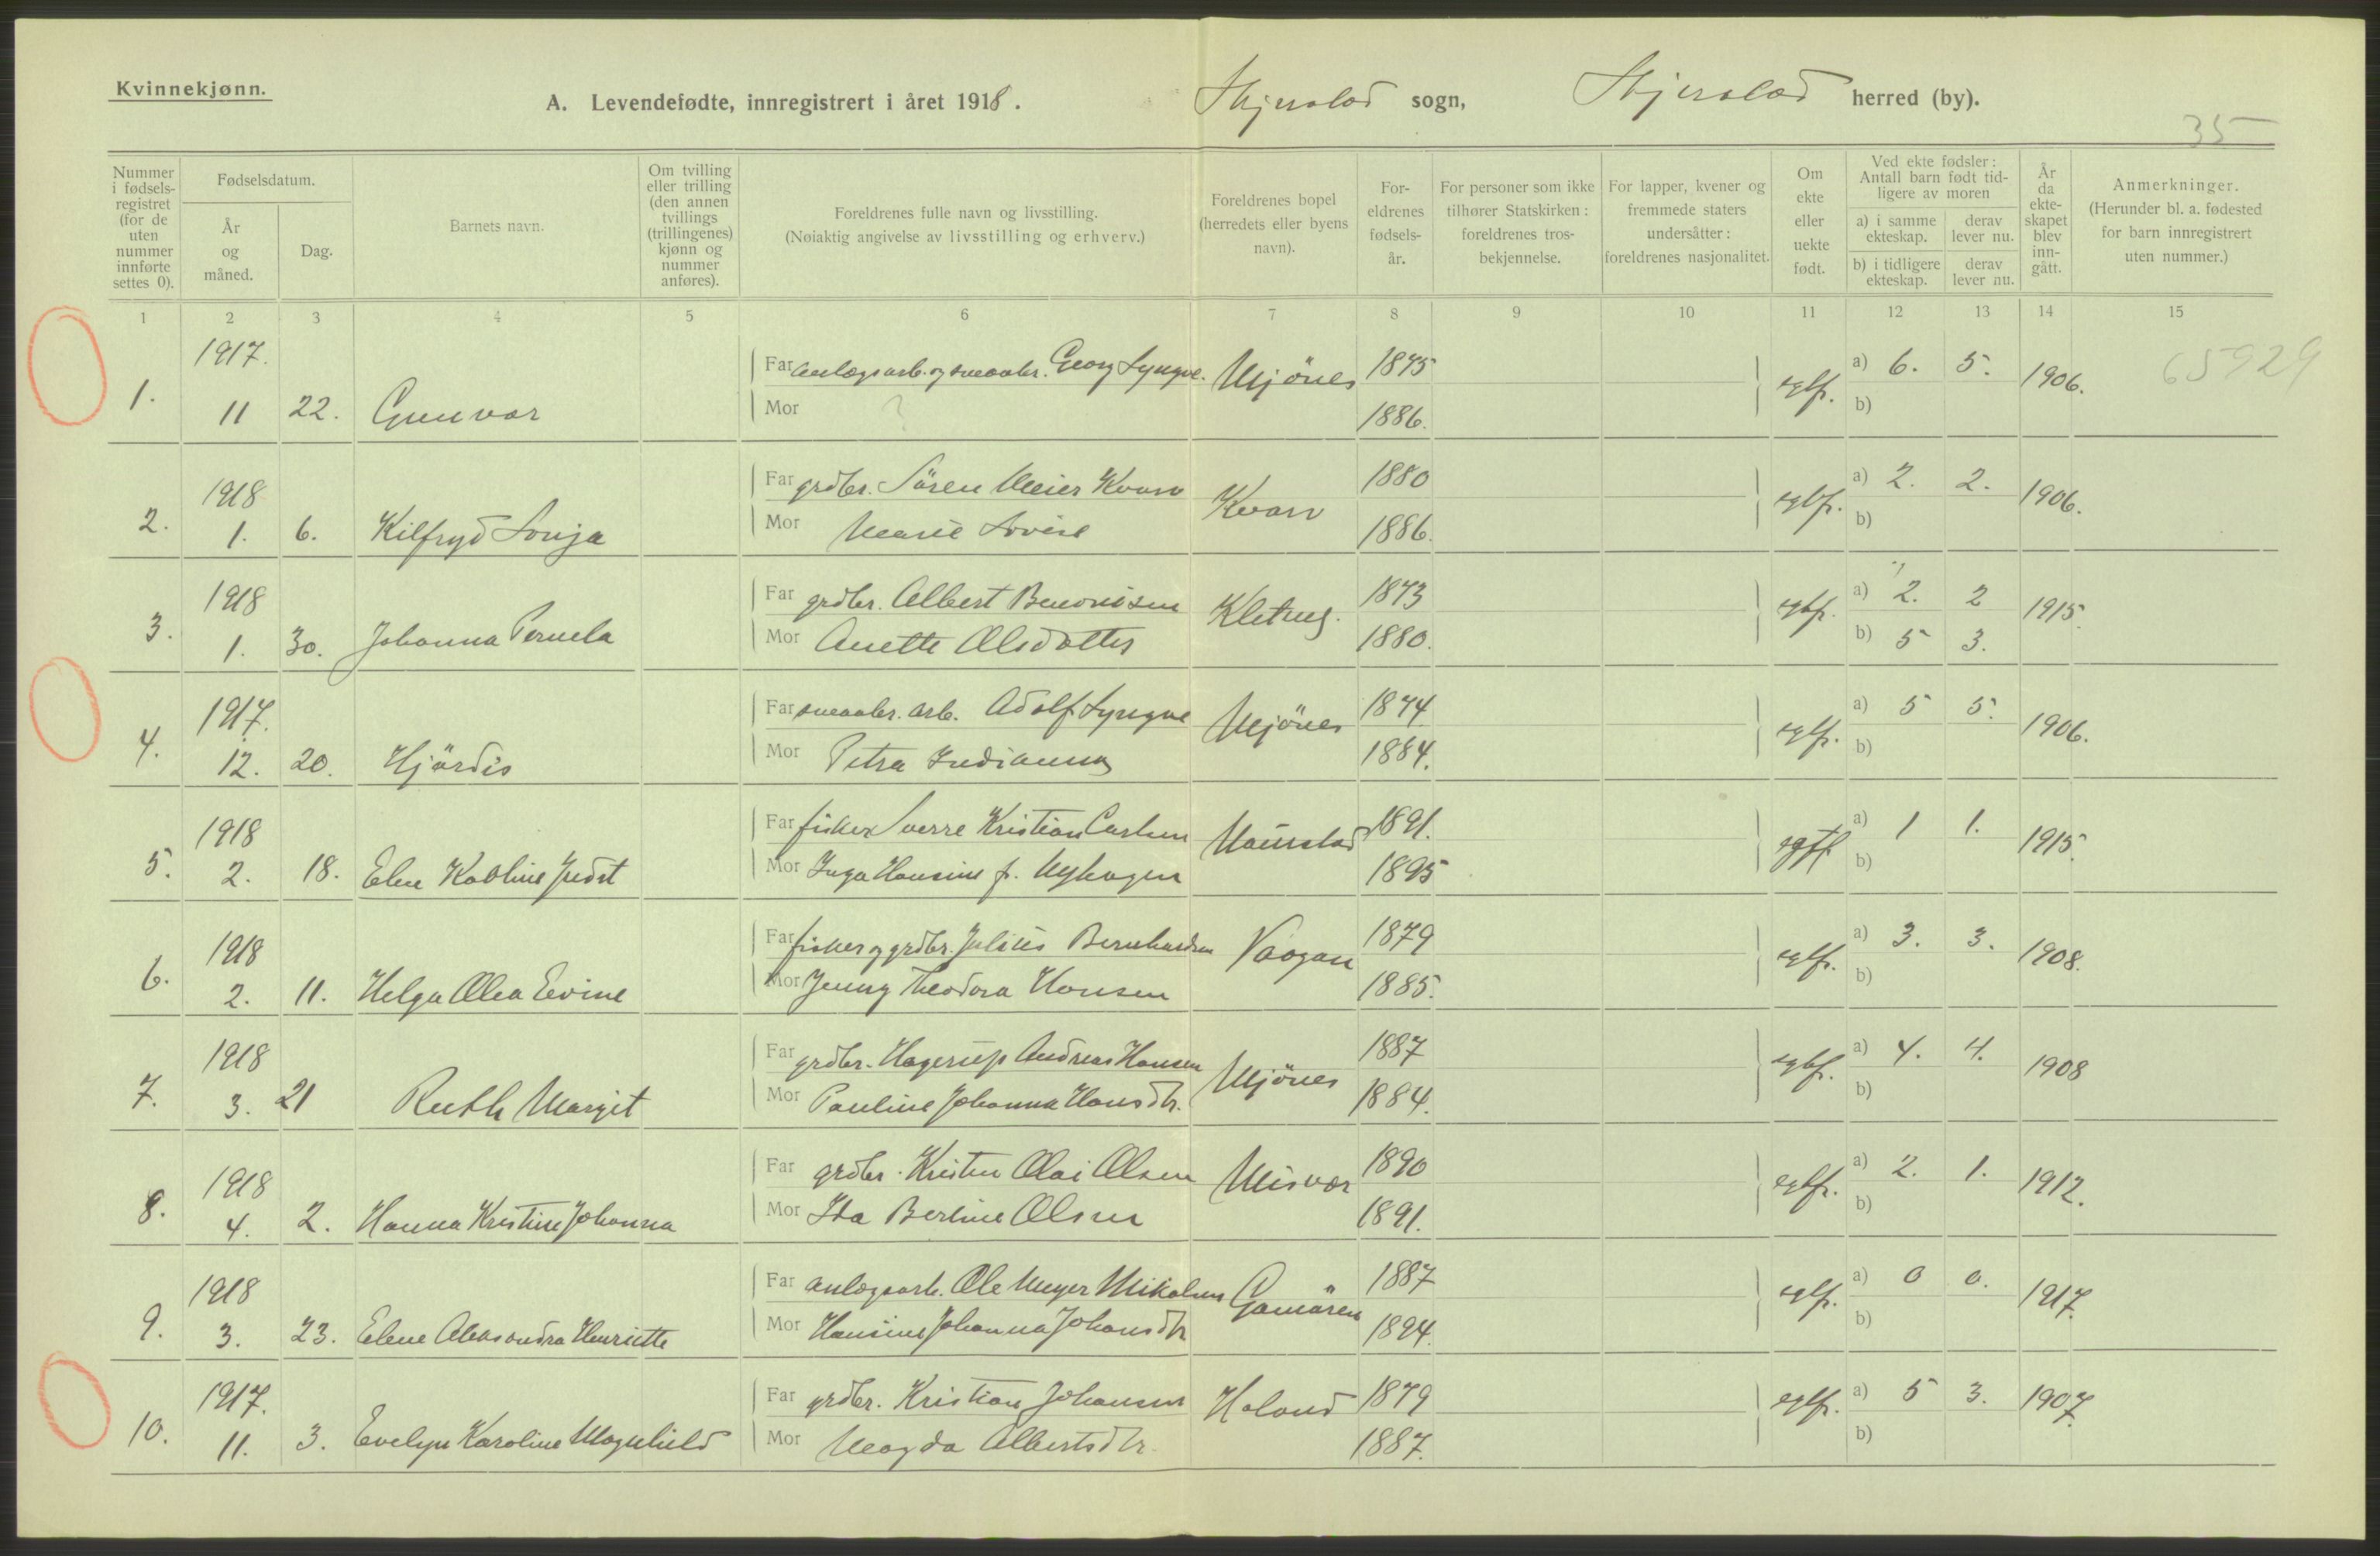 Kvinnekjønn.
A. Levendefødte, innregistrert i året 1918. Skjerstad sogn, Skjerstad herred (by).
35
Nummer i fødsels-registret (for de uten nummer innførte settes 0).
Fødselsdatum.
År og måned.
Dag.
Barnets navn.
Om tvilling eller trilling (den annen tvillings (trillingenes) kjønn og nummer anføres).
Foreldrenes fulle navn og livsstilling.
(Nøiaktig angivelse av livsstilling og erhverv.)
Foreldrenes bopel (herredets eller byens navn).
For-eldrenes fødsels-år.
For personer som ikke tilhører Statskirken: foreldrenes tros-bekjennelse.
For lapper, kvener og fremmede staters undersåtter: foreldrenes nasjonalitet.
Om ekte eller uekte født.
Ved ekte fødsler: Antall barn født tid-ligere av moren
a) i samme ekteskap.
derav lever nu.
b) i tidligere ekteskap.
derav lever nu.
År da ekte-skapet blev inn-gått.
Anmerkninger.
(Herunder bl. a. fødested for barn innregistrert uten nummer.)
1 2 3 4 5 6 7 8 9 10 11 12 13 14 15
1917. Far anlægsarb. og smaabr. Georg Lyngve. Mjönes 1875 egtf. a) 6. 5. 1906. 65929
1. 11 22. Gunvor Mor ? 1886. b)
1918 Far grdbr. Sören Meier Kvarv Kvarv 1880 egtf. a) 2. 2. 1906.
2. 1. 6. Kilfryd Sonja Mor Marie Lovise 1886. b)
1918 Far grdbr. Albert Benonisen 1873 egtf. a) 2. 2 1915.
3. 1. 30. Johanna Pernela Mor Anette Olsdatter 1880. b) 5 3.
1917. Far smaabr. arb. Adolf Lyngve Mjönes 1874 egtf. a) 5 5. 1906.
4. 12. 20. Hjördis Mor Petra Indianna 1884. b)
1918 Far fisker Sverre Kristian Carlsen 1891. egtf. a) 1 1. 1915.
5. 2. 18. Elen Mor Inga Hansine f. Nyhagen 1895 b)
1918 Far fisker og grdbr. Julius Bernhardsen Vaagan 1879 egtf. a) 3. 3. 1908.
6. 2. 11. Helga Olea Evine Mor Jenny Theodora Hansen 1885. b)
1918 Far grdbr. Hagerup Andreas Hansen Mjönes 1887 egtf. a) 4. 4. 1908
7. 3. 21 Ruth Margit Mor Pauline Johanna Hansdtr. 1884. b)
1918 Far grdbr. Kristen Olai Olsen Misvær 1890 egtf. a) 2. 1. 1912.
8. 4. 2. Hanna Kristine Johanna Mor Ida Berline Olsen 1891. b)
1918 Far anlægsarb. Ole Meyer Mikalsen 1887 egtf. a) 0 0. 1917.
9. 3. 23. Elene Aleksandra Henriette Mor Hansine Johanna Johansdtr 1894. b)
1917. Far grdbr. Kristian Johansen Holand 1879 egtf. a) 5 3. 1907.
10. 11. 3. Evelyn Karoline Magnhild Mor Magda Albertsdtr. 1887. b)